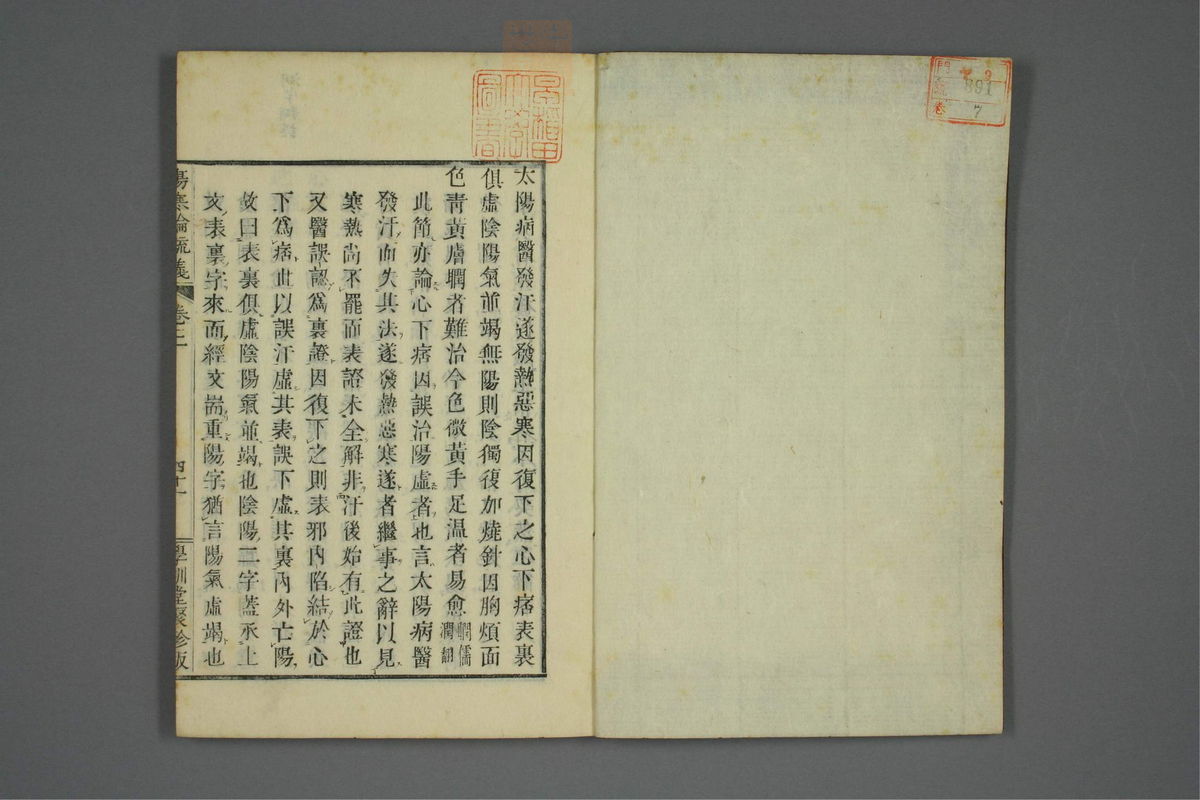 太陽病醫發汗遂發熱惡寒因復下之心下痞表裏
俱虛陰陽氣並竭無陽則陰獨復加燒針因胸煩面
色青黃膚瞤者難治今色微黃手足温者易愈瞤儒潤翻
此節亦論心下痞因誤治陽虛者也言太陽病醫
發汗而失其法遂發熱惡寒遂者繼事之辭以見
寒熱尚不罷而表證未全解非汗後始有此證也
又醫誤認爲裏證因復下之則表邪內陷結於心
下爲痞此以誤汗虛其表誤下虛其裏內外亡陽
故曰表裏俱虛陰陽氣並竭也陰陽二字蓋承上
文表裏字來而經文耑重陽字猶言陽氣虛竭也
傷寒論疏義
卷三
四十一
學訓堂聚珍版
早稻田大學圖書
門
號
卷
891
7